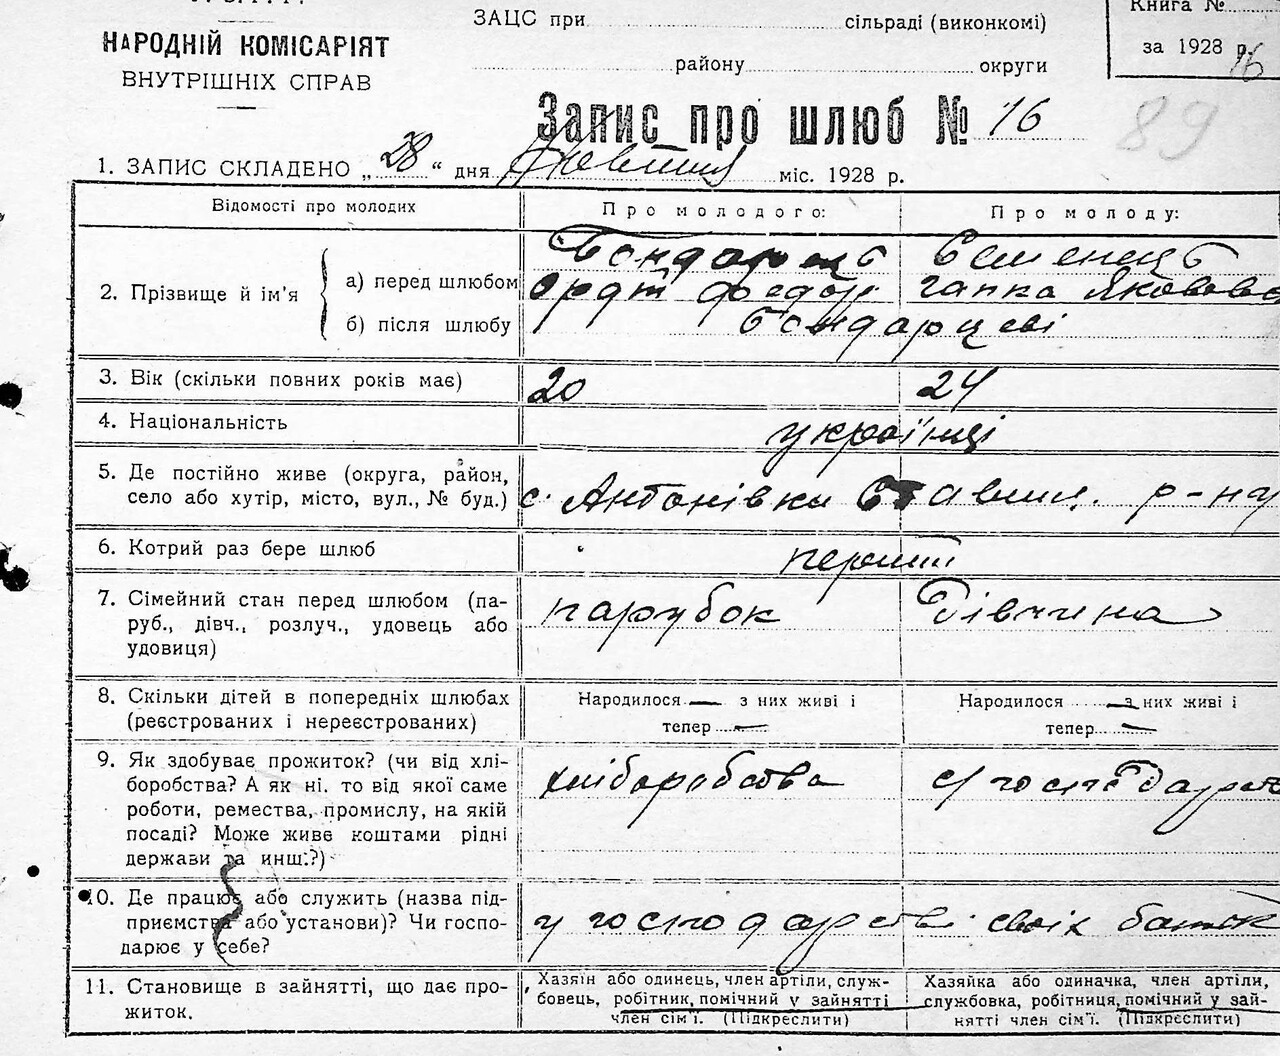 НАРОДНІЙ КОМІСАРІЯТ
ВНУТРІШНІХ СПРАВ
ЗАЦС при сільраді (виконкомі)
району округи
Книга №
за 1928 р.
16
Запис про шлюб № 16
89
1. ЗАПИС СКЛАДЕНО „28“ дня міс. 1928 р.
Відомості про молодих
Про молодого:
Про молоду:
2. Прізвище й ім'я
а) перед шлюбом
б) після шлюбу
Бондарець
Семенець
Гапка Яковова
Бондарцеві
3. Вік (скільки повних років має)
20
24
4. Національність
українці
5. Де постійно живе (округа, район,
село або хутір, місто, вул., № буд.)
с. Антонівка Ставищ. р-ну
6. Котрий раз бере шлюб
перший
7. Сімейний стан перед шлюбом (па-
руб., дівч., розлуч., удовець або
удовиця)
парубок
дівчина
8. Скільки дітей в попередніх шлюбах
(реєстрованих і нереєстрованих)
Народилося — з них живі і
тепер —
Народилося — з них живі і
тепер —
9. Як здобуває прожиток? (чи від хлі-
боробства? А як ні. то від якої саме
роботи, ремества, промислу, на якій
посаді? Може живе коштами рідні
держави та инш.?)
хліборобства
с/господарст
10. Де працює або служить (назва під-
приємства або установи)? Чи госпо-
дарює у себе?
у господарстві своїх батьк
11. Становище в зайнятті, що дає про-
житок.
Хазяїн або одинець, член артіли, служ-
бовець, робітник, помічний у зайнятті
член сім'ї. (Підкреслити)
Хазяйка або одиначка, член артіли,
службовка, робітниця, помічний у зай-
нятті член сім'ї. (Підкреслити)